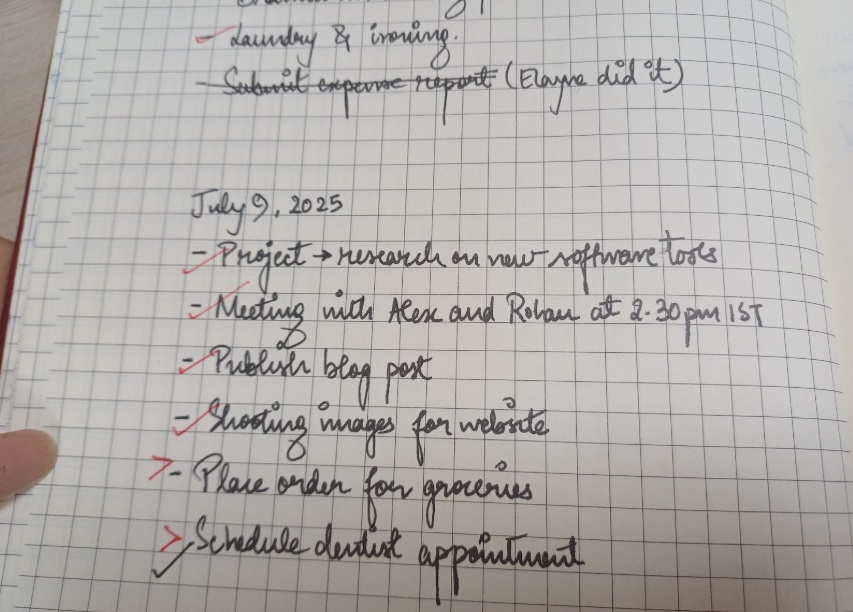 - Laundry & ironing.
- Submit expense report (Elayne did it)
July 9, 2025
- Project → research on new software tools
- Meeting with Alex and Rohan at 2.30pm IST
- Publish blog post
- Shooting images for website
>- Place order for groceries
> Schedule dentist appointment